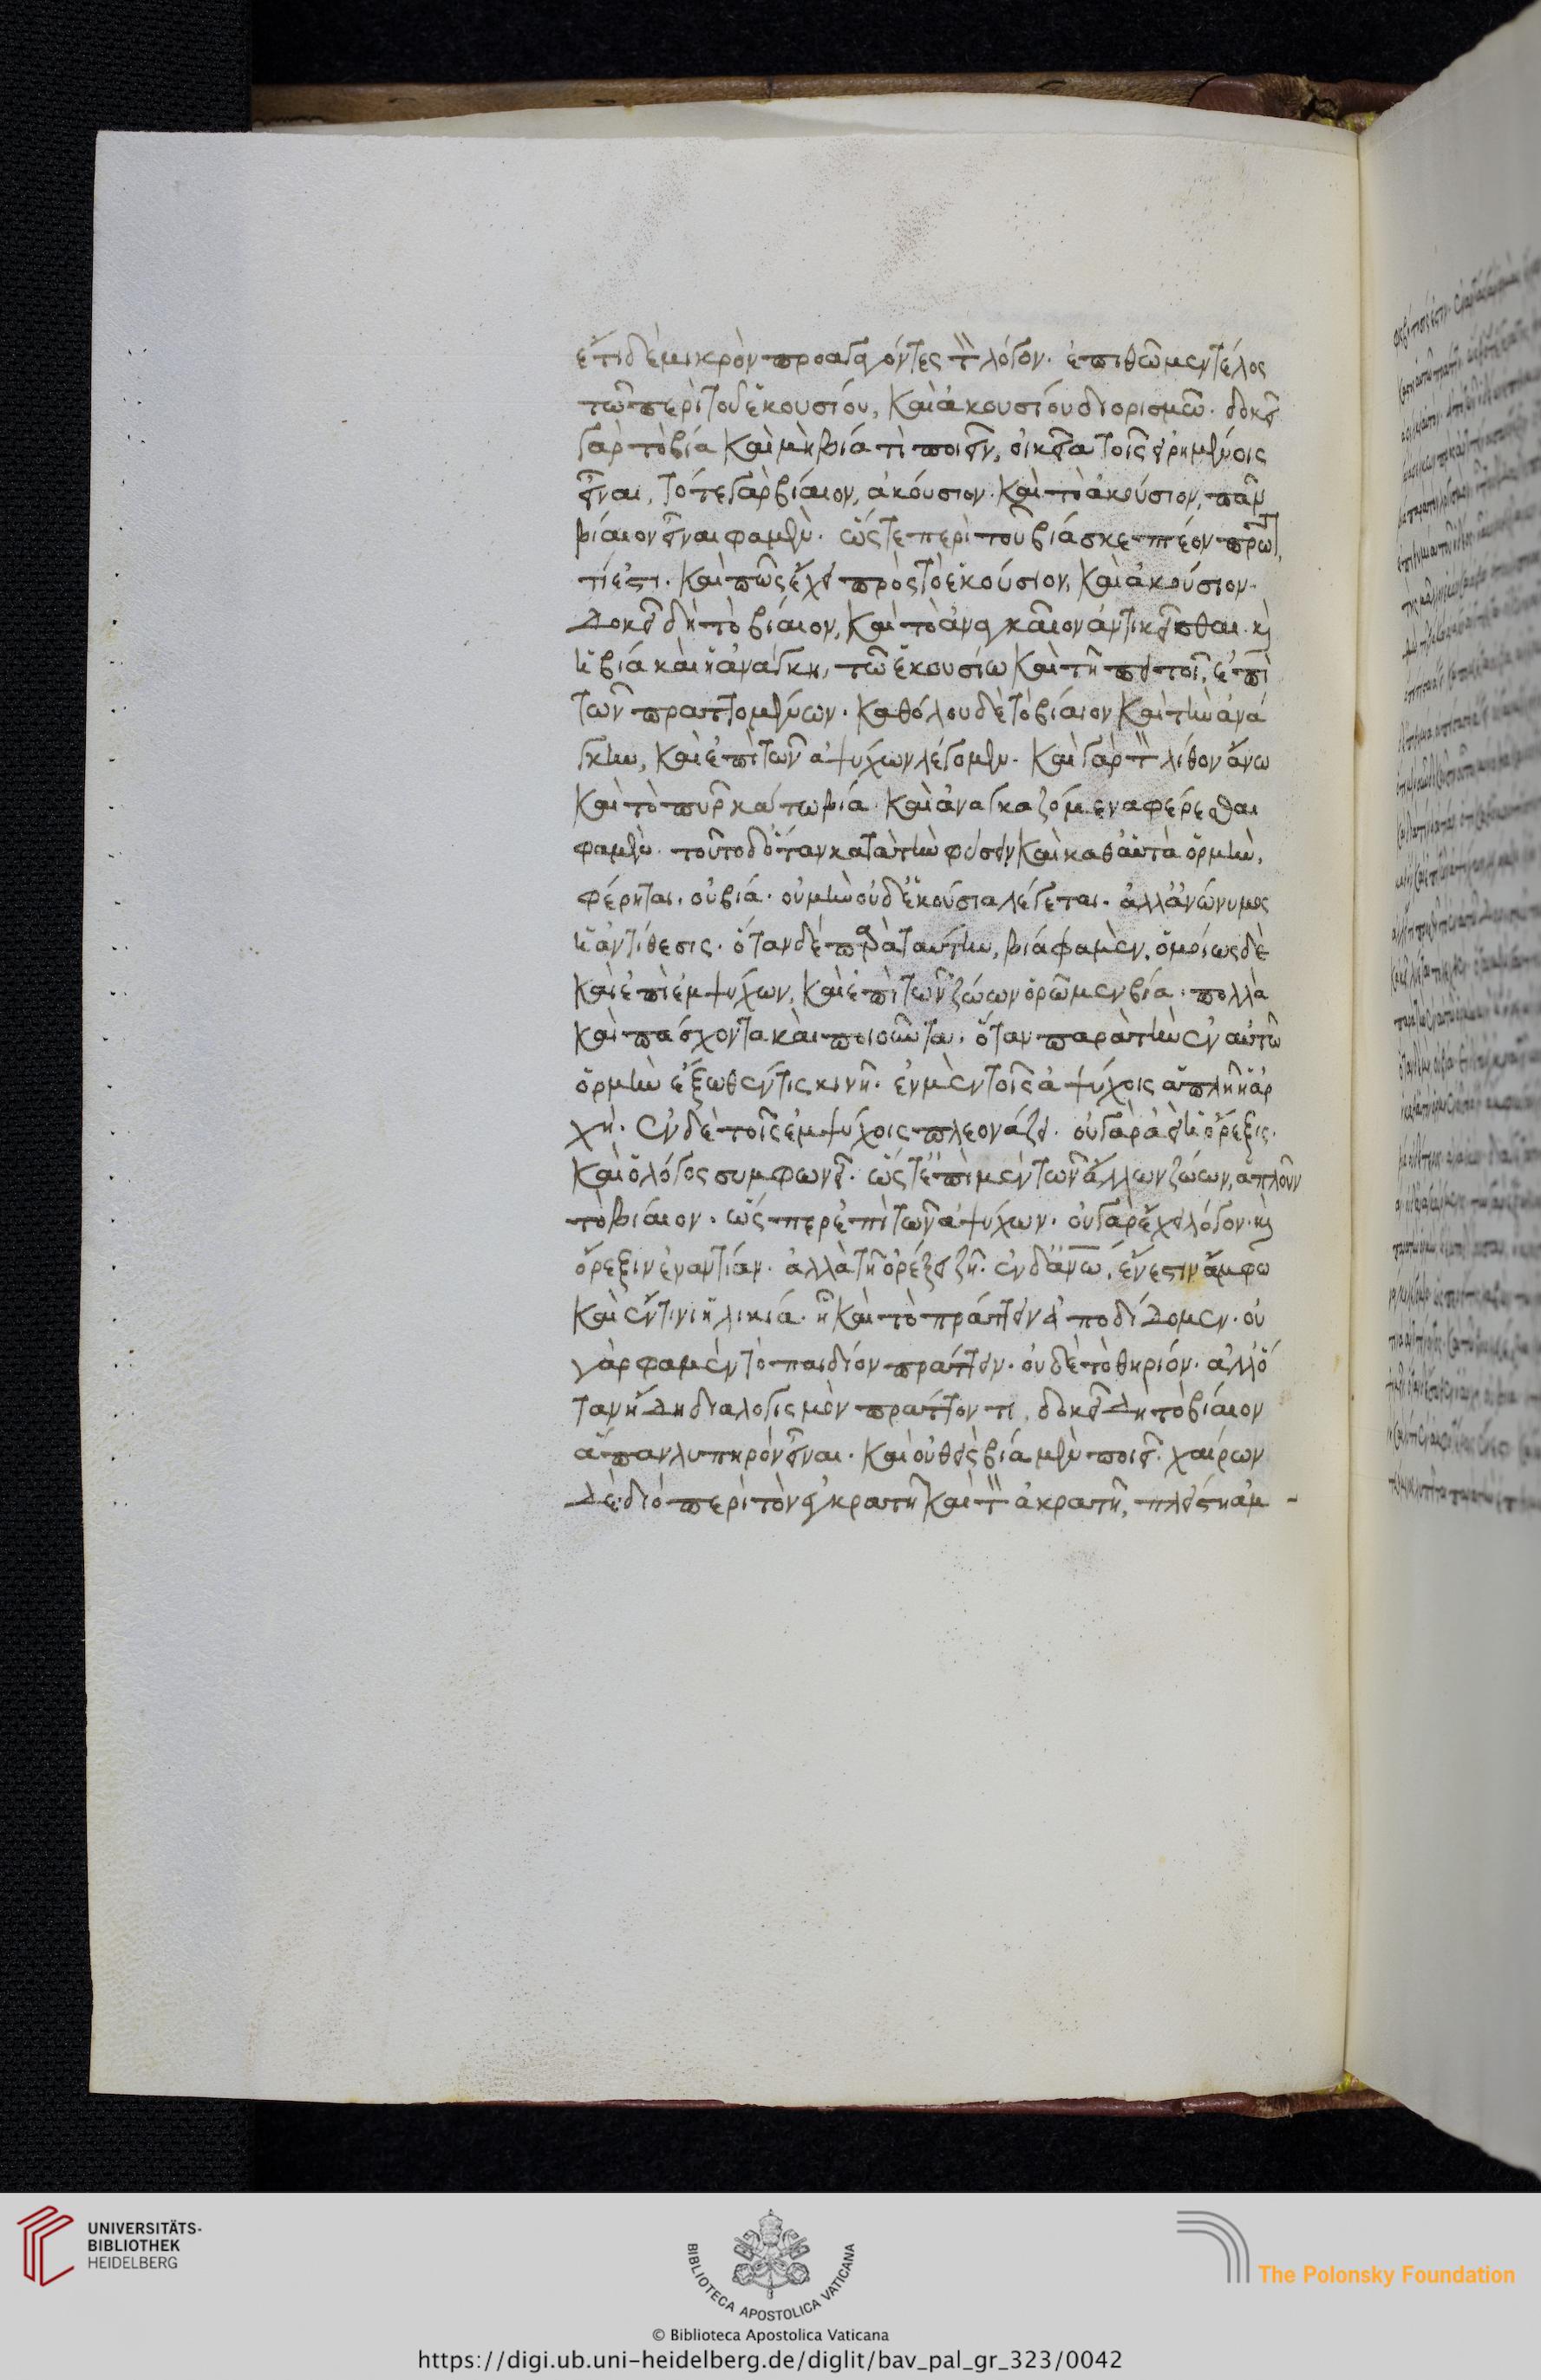 ἔτι δὲ μικρὸν προαγαγόντες τ̀ λόγον. ἐπιθῶμεν τέλος
τῶ περὶ τοῦ ἑκουσίου, καὶ ἀκουσίου διορισμῶ. δοκεῖ
γὰρ τὸ βία καὶ μὴ βιά τὶ ποιεῖν, οἰκεῖα τοῖς εἰρημένοις
εἶναι, τό τε γὰρ βίαιον, ἀκούσιον. καὶ τὸ ἀκούσιον, πᾶν
βίαιον εἶναι φαμὲν. ὥς τε περὶ τοῦ βιά σκεπτέον πρῶτ,
τί ἐστι. καὶ πῶς ἔχει πρὸς τὸ ἑκούσιον, καὶ ἀκούσιον.
Δοκεῖ δὴ τὸ βίαιον, καὶ τὸ ἀναγκαῖον ἀντικεῖσθαι. κὶ
ἡ βιά καὶ ἡ ἀνάγκη, τῶ ἑκουσίω καὶ τῆ πειτοῖ, ἐπὶ
τῶν πραττομένων. καθόλου δὲ τὸ βίαιον καὶ τὴν ἀνά
γκην, καὶ ἐπὶ τῶν ἀψύχων λέγομεν. καὶ γὰρ τ̀ λίθον ἄνω
καὶ τὸ πῦρ κάτω βιά. καὶ ἀναγκαζόμενα φέρεσθαι
φαμὲν. τοῦτο δ' ὅταν κατὰ τὴν φύσειν καὶ καθ' αὑτὰ ὁρμὴν,
φέρηται. οὐ βιά. οὐ μὴν οὐδ' ἑκούσια λέγεται. ἀλλ' ἀνώνυμος
ἡ ἀντίθεσις. ὅταν δὲ παρὰ ταύτην, βιά φαμὲν. ὁμοίως δὲ
καὶ ἐπὶ ἐμψύχων, καὶ ἐπὶ τῶν ζώων ὁρῶμεν βία. πολλὰ
καὶ πάσχοντα καὶ ποιοῦντα. ὅταν παρὰ τὴν ἐν αὐτῶ
ὁρμὴν ἔξωθέν τις κινῆ. ἐν μὲν τοῖς ἀψύχοις ἁπλῆ ἡ ἀρ
χή. ἐν δὲ τοῖς ἐμψύχοις πλεονάζει. οὐ γὰρ ἀεὶ ἡ ὄρεξις.
καὶ ὁ λόγος συμφωνεῖ. ὥς τ' ἐπὶ μὲν τῶν ἄλλων ζώων, ἁπλοῦν
τὸ βίαιον. ὥς περ ἐπὶ τῶν ἀψύχων. οὐ γὰρ ἔχει λόγον. κὶ
ὄρεξιν ἐναντίαν. ἀλλὰ τῆ ὀρέξει ζῆ. ἐν δ' ἀνω, ἔνεστιν ἄμφω
καὶ ἔν τινι ἡλικιά. ἧ καὶ τὸ πράττειν ἀποδίδομεν. οὐ
γὰρ φαμὲν τὸ παιδίον πράττειν. οὐδὲ τὸ θηρίον. ἀλλ' ὅ
ταν ἤδη διαλογισμὸν πράττον τι. δοκεῖ δὴ τὸ βίαιον
ἅπαν λυπηρὸν εἶναι. καὶ οὐθεὶς βιά μὲν ποιεῖ. χαίρων
δὲ. διὸ περὶ τὸν ἐγκρατῆ καὶ τ̀ ἀκρατῆ, πλείστη ἀμ -
UNIVERSITÄTS-
BIBLIOTHEK
HEIDELBERG
BIBLIOTECA APOSTOLICA VATICANA
The Polonsky Foundation
© Biblioteca Apostolica Vaticana
https://digi.ub.uni-heidelberg.de/diglit/bav_pal_gr_323/0042